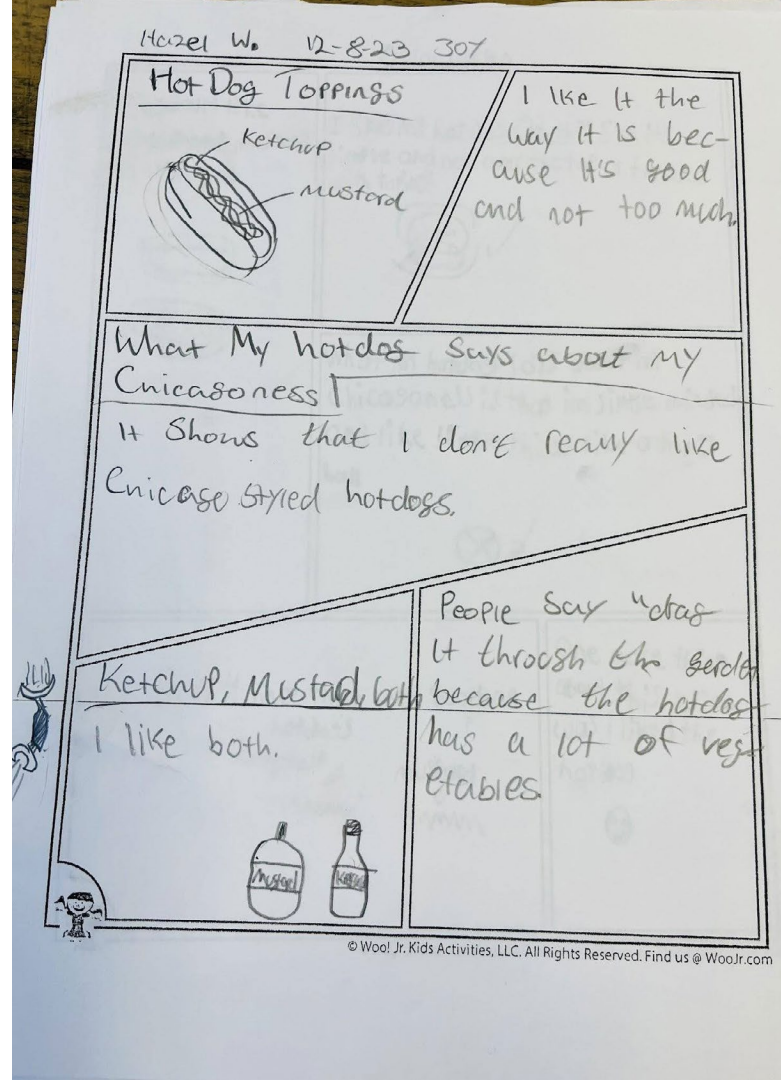 Hazel W. 12-8-23 304
Hot Dog Toppings
Ketchup
Mustard
I like it the
way it is bec-
ause it's good
and not too much.
What My hotdog Says about My
Chicagoness!
It Shows that I don't really like
Chicago styled hotdogs.
Ketchup, Mustard, both
I like both.
Mustard
Ketchup
People say "drag
it through the garden
because the hotdog
has a lot of veg-
etables.
© Woo! Jr. Kids Activities, LLC. All Rights Reserved. Find us @ WooJr.com